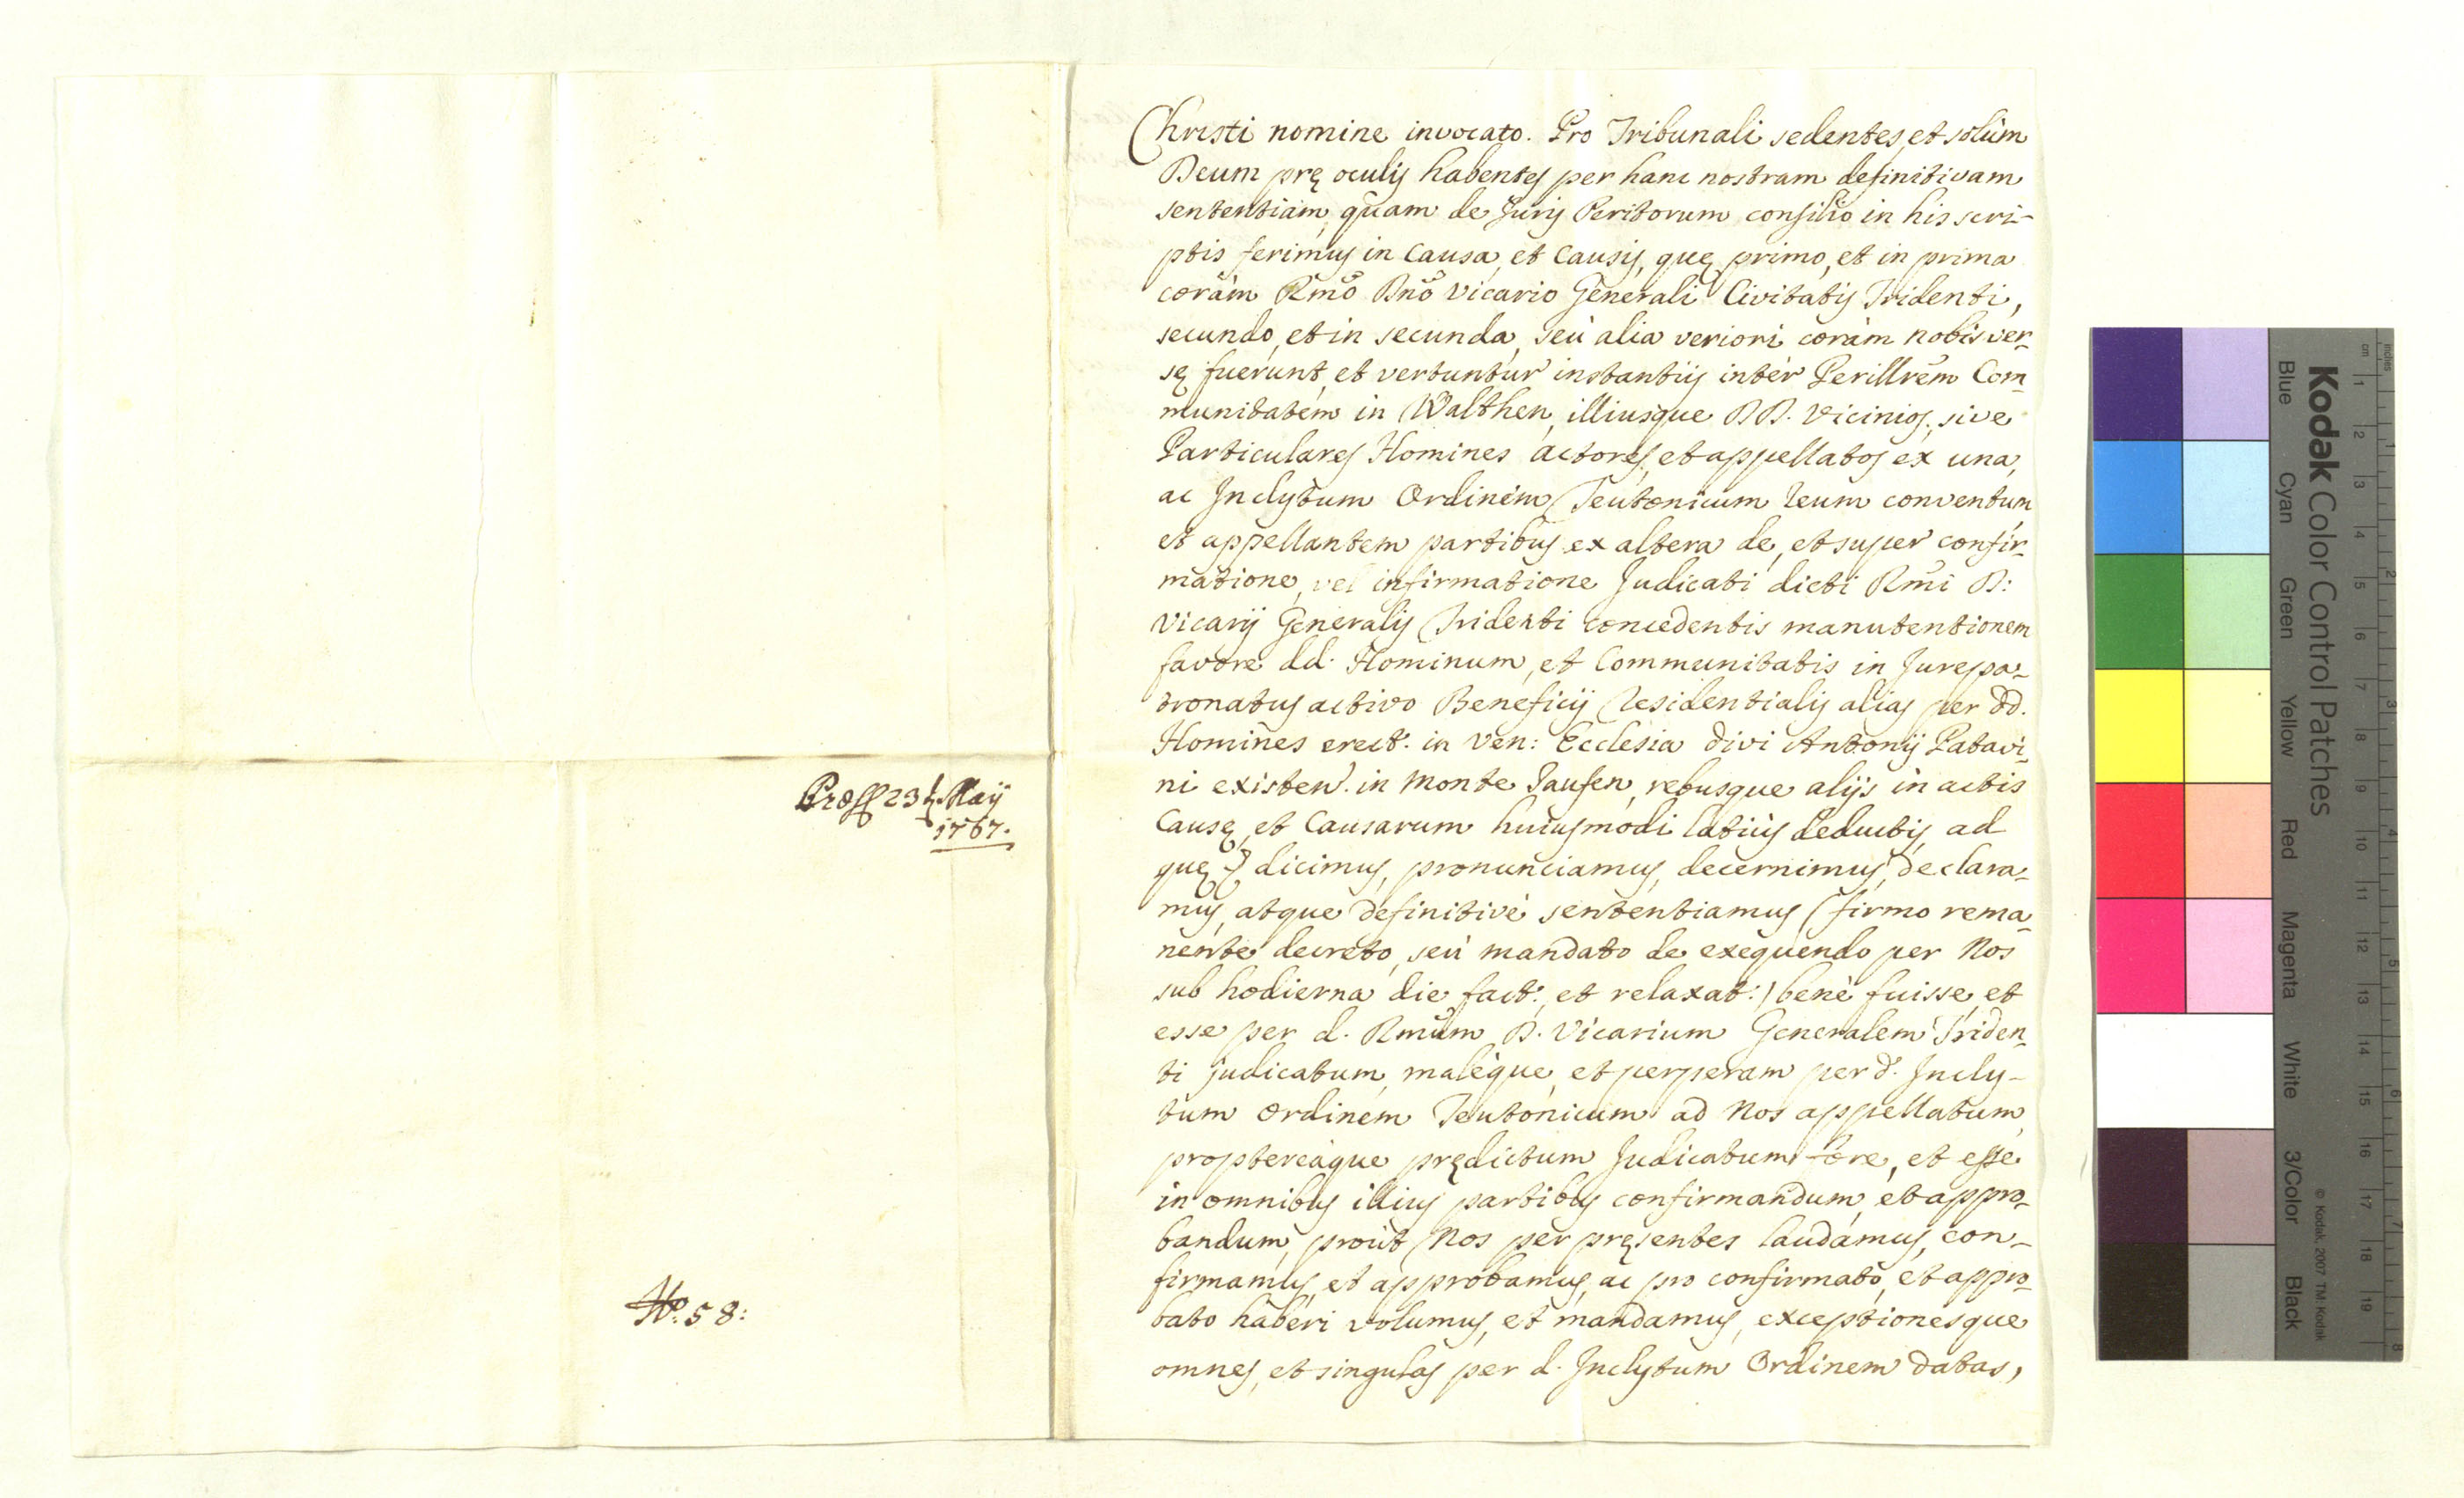 Præss 23t. Maÿ
1767.
N: 58:
Christi nomine invocato. Pro Tribunali sedentes, et solùm
Deum prę oculis habentes per hanc nostram definitivam
sententiam, quam de Juris Peritorum consilio in his scri-
ptis ferimus in Causa, et Causis, quę primo, et in prima
coràm Rmõ Dnõ Vicario Generali Civitatis Tridenti,
secundo, et in secunda, seù alia veriori coràm nobis ver-
sę fuerunt, et vertuntur instantiis intèr Perillrẽm Com-
munitatem in Walthen, illiusque DD. Vicinios, sive
Particulares Homines actores, et appellatos ex una,
ac Inclytum Ordinem Teutonicum Reum conventum
et appellantem partibus ex altera de, et super confir-
matione, vel infirmatione Judicati dicti Rmĩ D:
Vicarij Generalis Tridenti concedentis manutentionem
favore dd. Hominum, et Communitatis in Jurepa-
tronatus activo Beneficij Residentialis alias per dd.
Homines erect. in Ven: Ecclesia Divi Antonij Patavi-
ni existen. in Monte Jaufen, rebusque alijs in actis
Causę, et Causarum huiusmodi latiùs deductis, ad
quę dicimus, pronunciamus, decernimus, declara-
mus, atque definitivè sententiamus (firmo rema-
nente decreto, seù mandato de exequendo per Nos
sub hodierna die fact:, et relaxat:) benè fuisse, et
esse per d. Rmũm D. Vicarium Generalem Triden-
ti judicatum, malèque, et perperam per d. Incly-
tum Ordinem Teutonicum ad Nos appellatum,
proptereàque prędictum Judicatum fore, et esse
in omnibus illius partibus confirmandum, et appro-
bandum, proùt Nos per pręsentes laudamus, con-
firmamus, et approbamus, ac pro confirmato, et appro-
bato haberi volumus, et mandamus, exceptionesque
omnes, et singulas per d. Inclytum Ordinem datas,
Kodak Color Control Patches
Blue Cyan Green Yellow Red Magenta White 3/Color Black
© Kodak, 2007 TM: Kodak
inches 1 2 3 4 5 6 7 8
cm 1 2 3 4 5 6 7 8 9 10 11 12 13 14 15 16 17 18 19